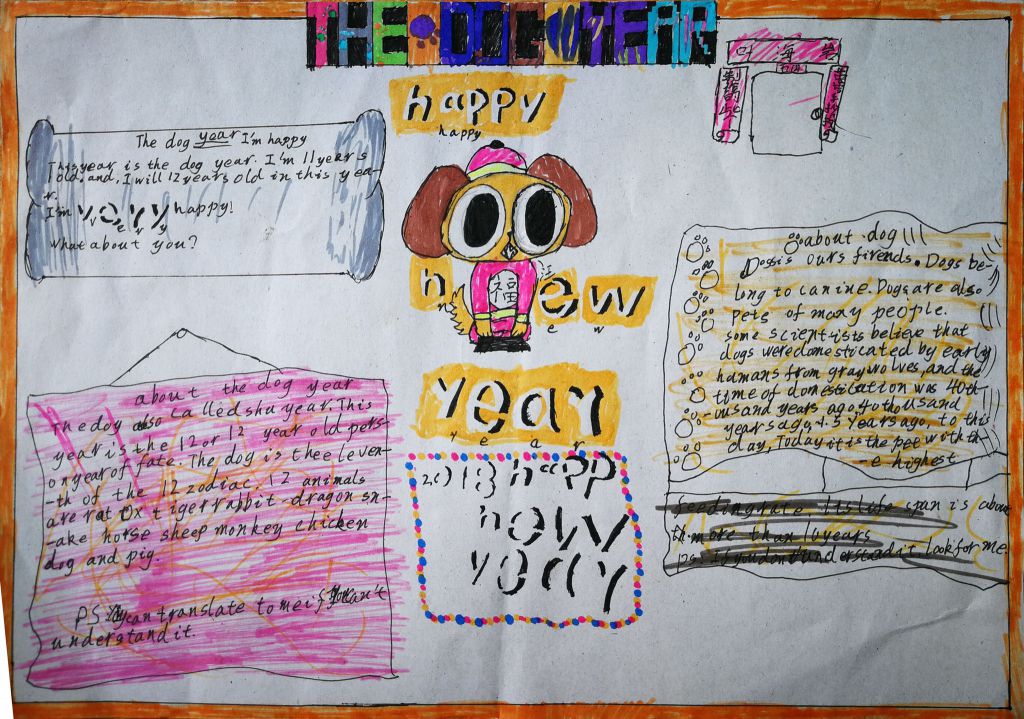 THE DOG YEAR
happy
happy
The dog year I'm happy
This year is the dog year. I'm 11 years
old. and. I will 12 years old in this yea-
r.
I'm very happy!
v e r y
What about you?
福
new
n e w
year
y e a r
2018 happ
new
year
about dog
Dogs is ours firends. Dogs be-
long to canine. Dogs are also
Pets of many people.
some scientists believe that
dogs were domesticated by early
hamans from gray wolves, and the
time of domestication was 40th-
-ousand years ago, 40 thousand
years ago, 1.5 years ago, to this
day, Today it is the pet with th-
-e highest
feeding rate Its life span is about
th more than 10 years
PS: If you don't understand it look for me
about the dog year
The dog also called shu year. This
year is the 12 or 12 year old pers-
on year of fate. The dog is the eleven-
-th of the 12 zodiac. 12 animals
are rat Ox tiger rabbit dragon sn-
-ake horse sheep monkey chicken
dog and pig.
PS can translate to me if can't
understand it.